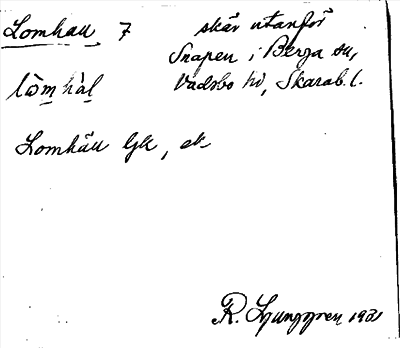 Lomhall 7 skär utanför
Snapen i Berga sn,
lòm̲hàl̲ Vadsbo hd, Skarab. l.
Lomhäll Gk, ek
R. Ljunggren 1921